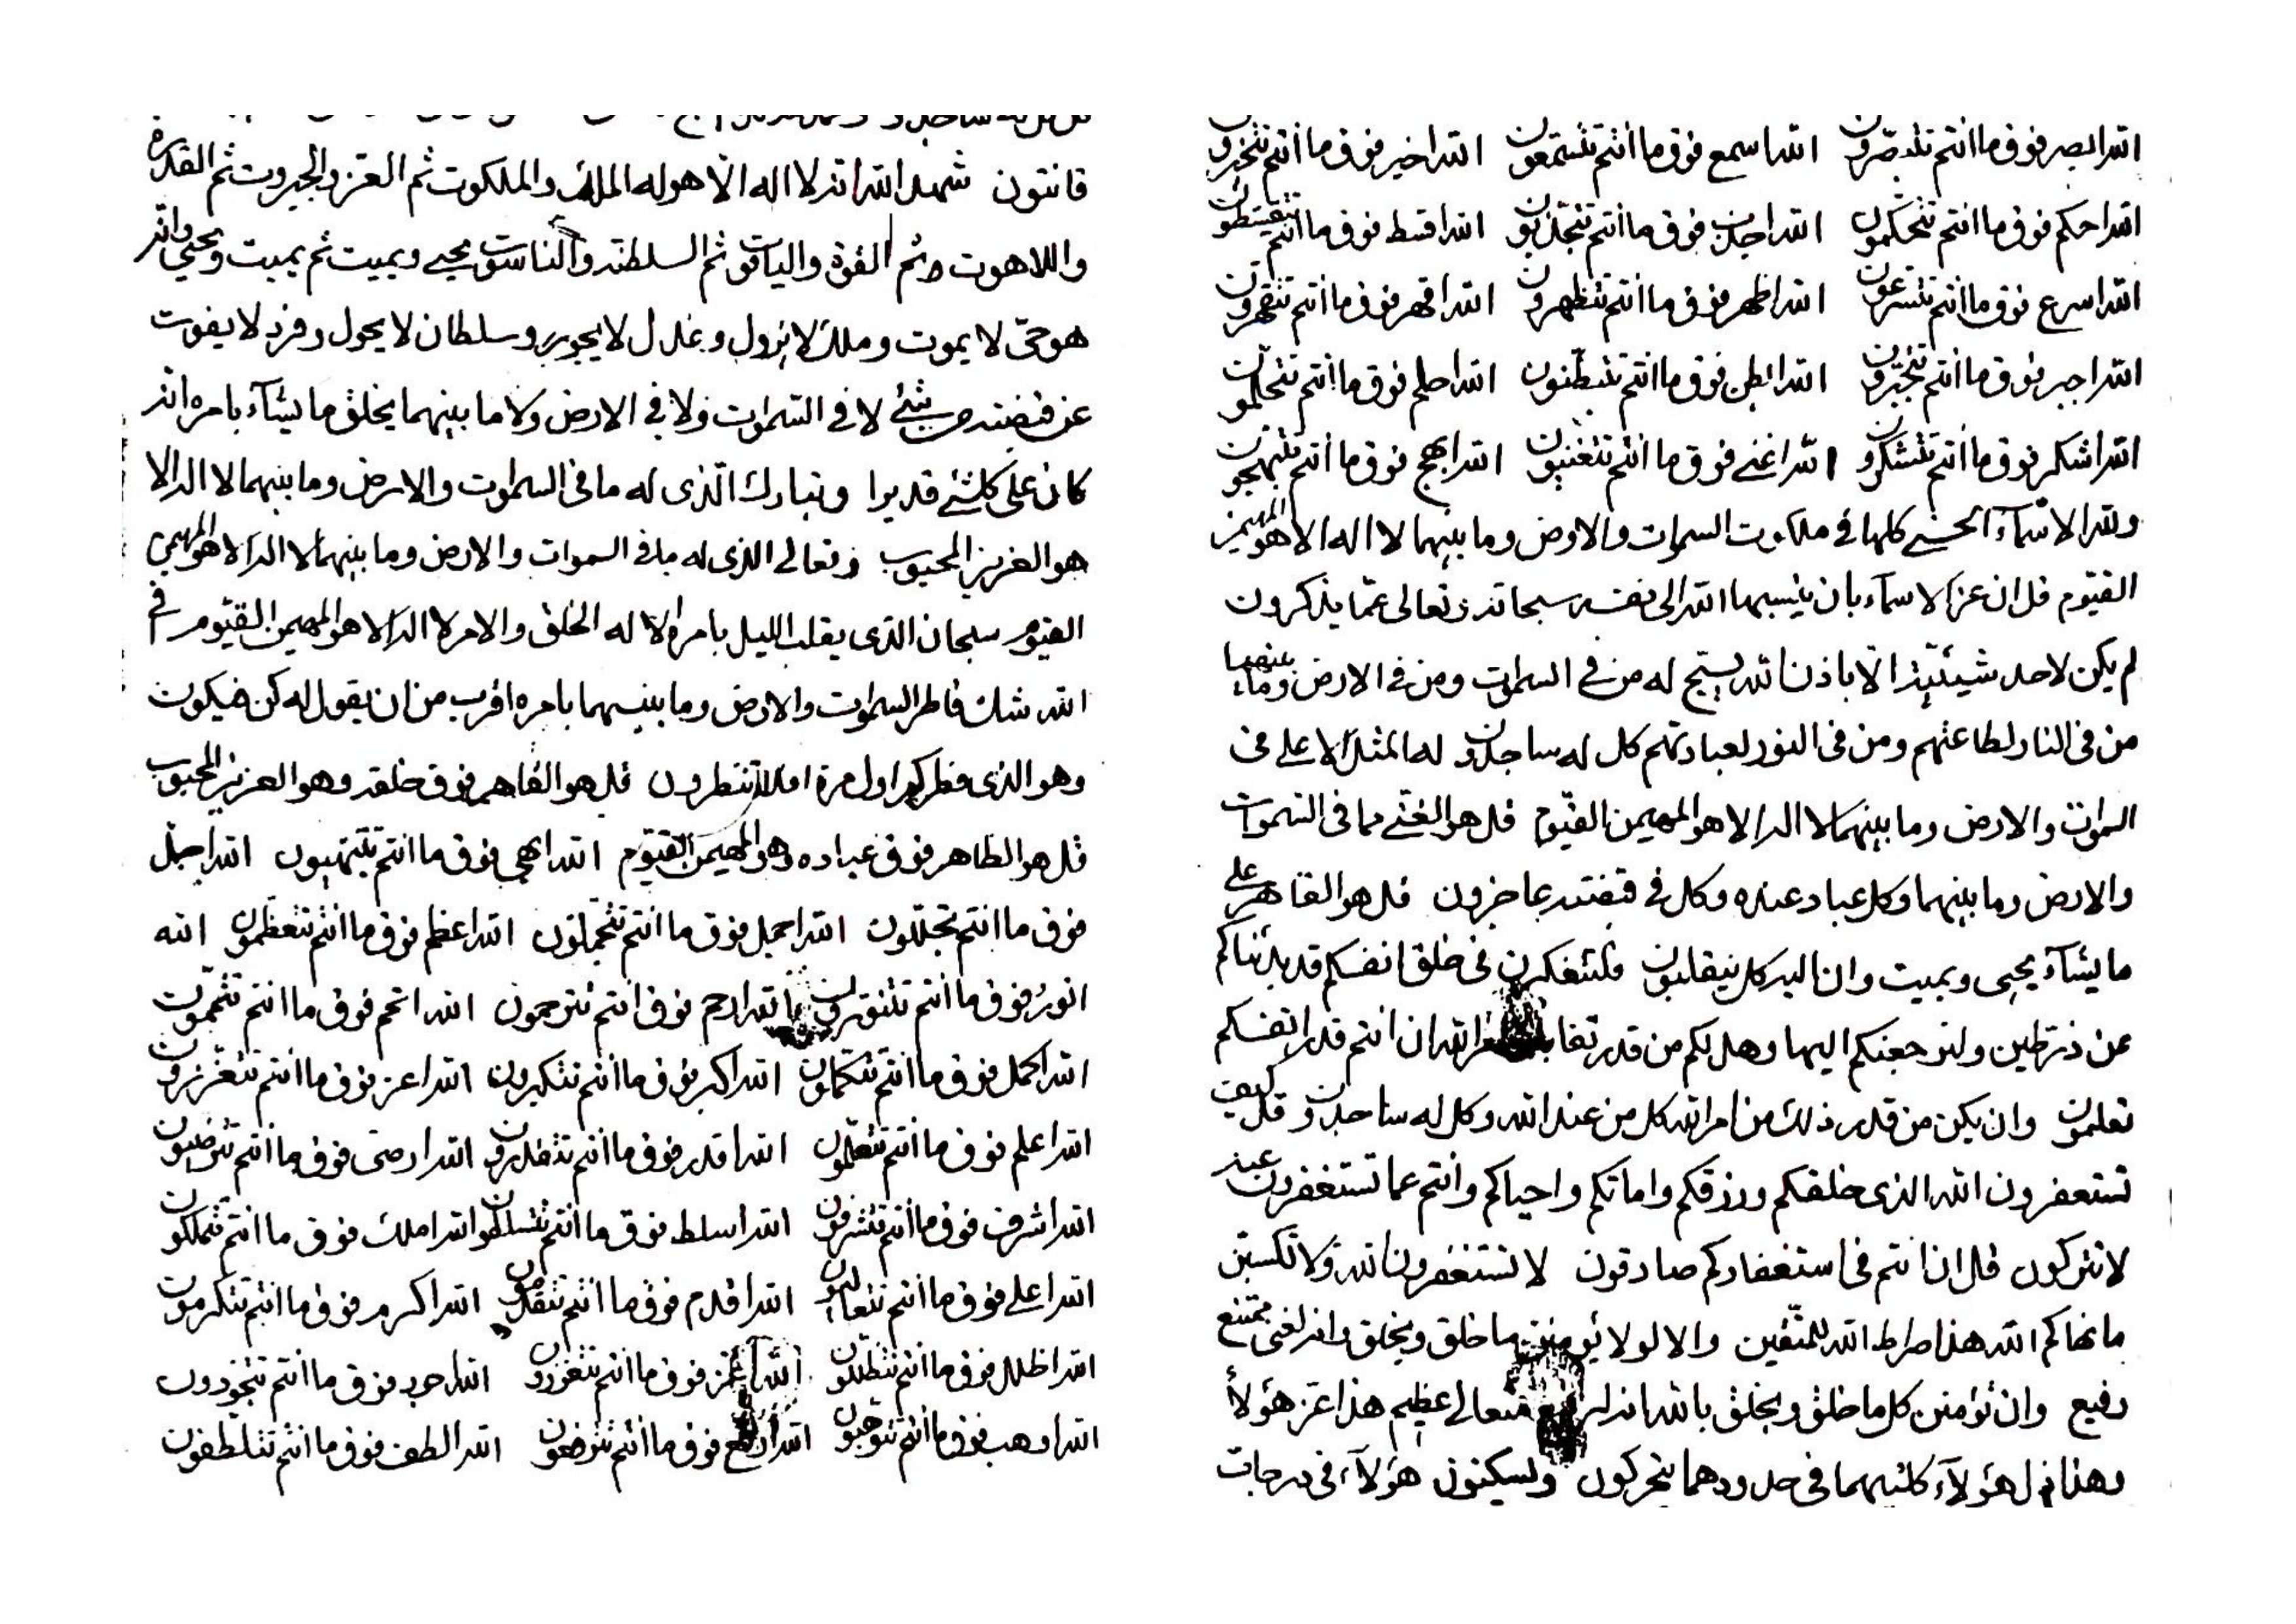 قانتون شهد الله انه لا اله الا هو له الملك والملكوت ثم العز والجبروت ثم القدرة
واللاهوت ثم القوة والياقوت ثم السلطنة والناسوت يحيي ويميت ثم يميت ويحيي وانه
هو حي لا يموت وملك لا يزول وعدل لا يجور وسلطان لا يحول وفرد لا يفوت
عن قبضته من شئ لا في السموات ولا في الارض ولا ما بينهما يخلق ما يشآء بامره انه
كان على كلشئ قديرا وتبارك الذى له ما فى السموات والارض وما بينهما لا اله الا
هو العزيز المحبوب وتعالى الذى له ما فى السموات والارض وما بينهما لا اله الا هو المهيمن
القيوم سبحان الذى يقلب الليل بامره الا له الخلق والامر لا اله الا هو المهيمن القيوم افى
الله شك فاطر السموات والارض وما بينهما بامره اقرب من ان يقول له كن فيكون
وهو الذى فطركم اول مرة افلا تنظرون قل هو القاهر فوق خلقه وهو العزيز المحبوب
قل هو الظاهر فوق عباده وهو المهيمن القيوم الله ابهى فوق ما انتم تبتهيون الله اجلل
فوق ما انتم تجللون الله اجمل فوق ما انتم تتجملون الله اعظم فوق ما انتم تتعظمون الله
انور فوق ما انتم تتنورون الله ارحم فوق انتم تترحمون الله اتمم فوق ما انتم تتممون
الله اكمل فوق ما انتم تتكملون الله اكبر فوق ما انتم تتكبرون الله اعزز فوق ما انتم تتعززون
الله اعلم فوق ما انتم تتعلمون الله اقدر فوق ما انتم تتقدرون الله ارضى فوق ما انتم تترضيون
الله اشرف فوق ما انتم تتشرفون الله اسلط فوق ما انتم تتسلطون الله املك فوق ما انتم تتملكون
الله اعلى فوق ما انتم تتعاليون الله اقدم فوق ما انتم تتقدمون الله اكرم فوق ما انتم تتكرمون
الله اظلل فوق ما انتم تتظللون الله اغزز فوق ما انتم تتغززون الله اجود فوق ما انتم تتجودون
الله اوهب فوق ما انتم تتوهبون الله ارفع فوق ما انتم تترفعون الله الطف فوق ما انتم تتلطفون
الله ابصر فوق ما انتم تتبصرون الله اسمع فوق ما انتم تتسمعون الله اخبر فوق ما انتم تتخبرون
الله احكم فوق ما انتم تتحكمون الله اجذب فوق ما انتم تتجذبون الله اقسط فوق ما انتم تتقسطون
الله اسرع فوق ما انتم تتسرعون الله اظهر فوق ما انتم تتظهرون الله اقهر فوق ما انتم تتقهرون
الله اجبر فوق ما انتم تتجبرون الله ابطن فوق ما انتم تتبطنون الله احلم فوق ما انتم تتحلمون
الله اشكر فوق ما انتم تتشكرون الله اغنى فوق ما انتم تتغنيون الله ابهج فوق ما انتم تتبهجون
ولله الاسمآء الحسنى كلها فى ملكوت السموات والارض وما بينهما لا اله الا هو المهيمن
القيوم قل ان عز الاسمآء بان ينسبها الله الى نفسه سبحانه وتعالى عما يذكرون
لم يكن لاحد شيئية الا باذن الله يسبح له من فى السموات ومن فى الارض وما بينهما
من فى النار لطاعتهم ومن فى النور لعبادتهم كل له ساجدون له المثل الاعلى فى
السموات والارض وما بينهما لا اله الا هو المهيمن القيوم قل هو الغنى عما فى السموات
والارض وما بينهما وكل عباد عنده وكل فى قبضته عاجزون قل هو القاهر على
ما يشآء يحيى ويميت وان اليه كل ينقلبون فلتتفكرن فى خلق انفسكم قد بدئناكم
عن ذر طين ولنرجعنكم اليها وهل لكم من قدر الله ان انتم قدر انفسكم
تعلمون وان يكن من قدر ذلك من امر الله كل من عند الله وكل له ساجدون قل كيف
تستغفرون الله الذى خلقكم ورزقكم واماتكم واحياكم وانتم عما تستغفرون عنه
لا تتركون قل ان انتم فى استغفاركم صادقون لا تستغفرون الله ولا تكسبن
ما نهاكم الله هذا صراط الله للمتقين والا لو لا يؤمنن ما خلق ويخلق انه لغنى ممتنع
رفيع وان تؤمنن كل ما خلق ويخلق بالله انه متعالى عظيم هذا عز هؤلآء
وهذا ذل هؤلآء كلتيهما فى حدودهما يتحركون وليسكنون هؤلآء فى درجات